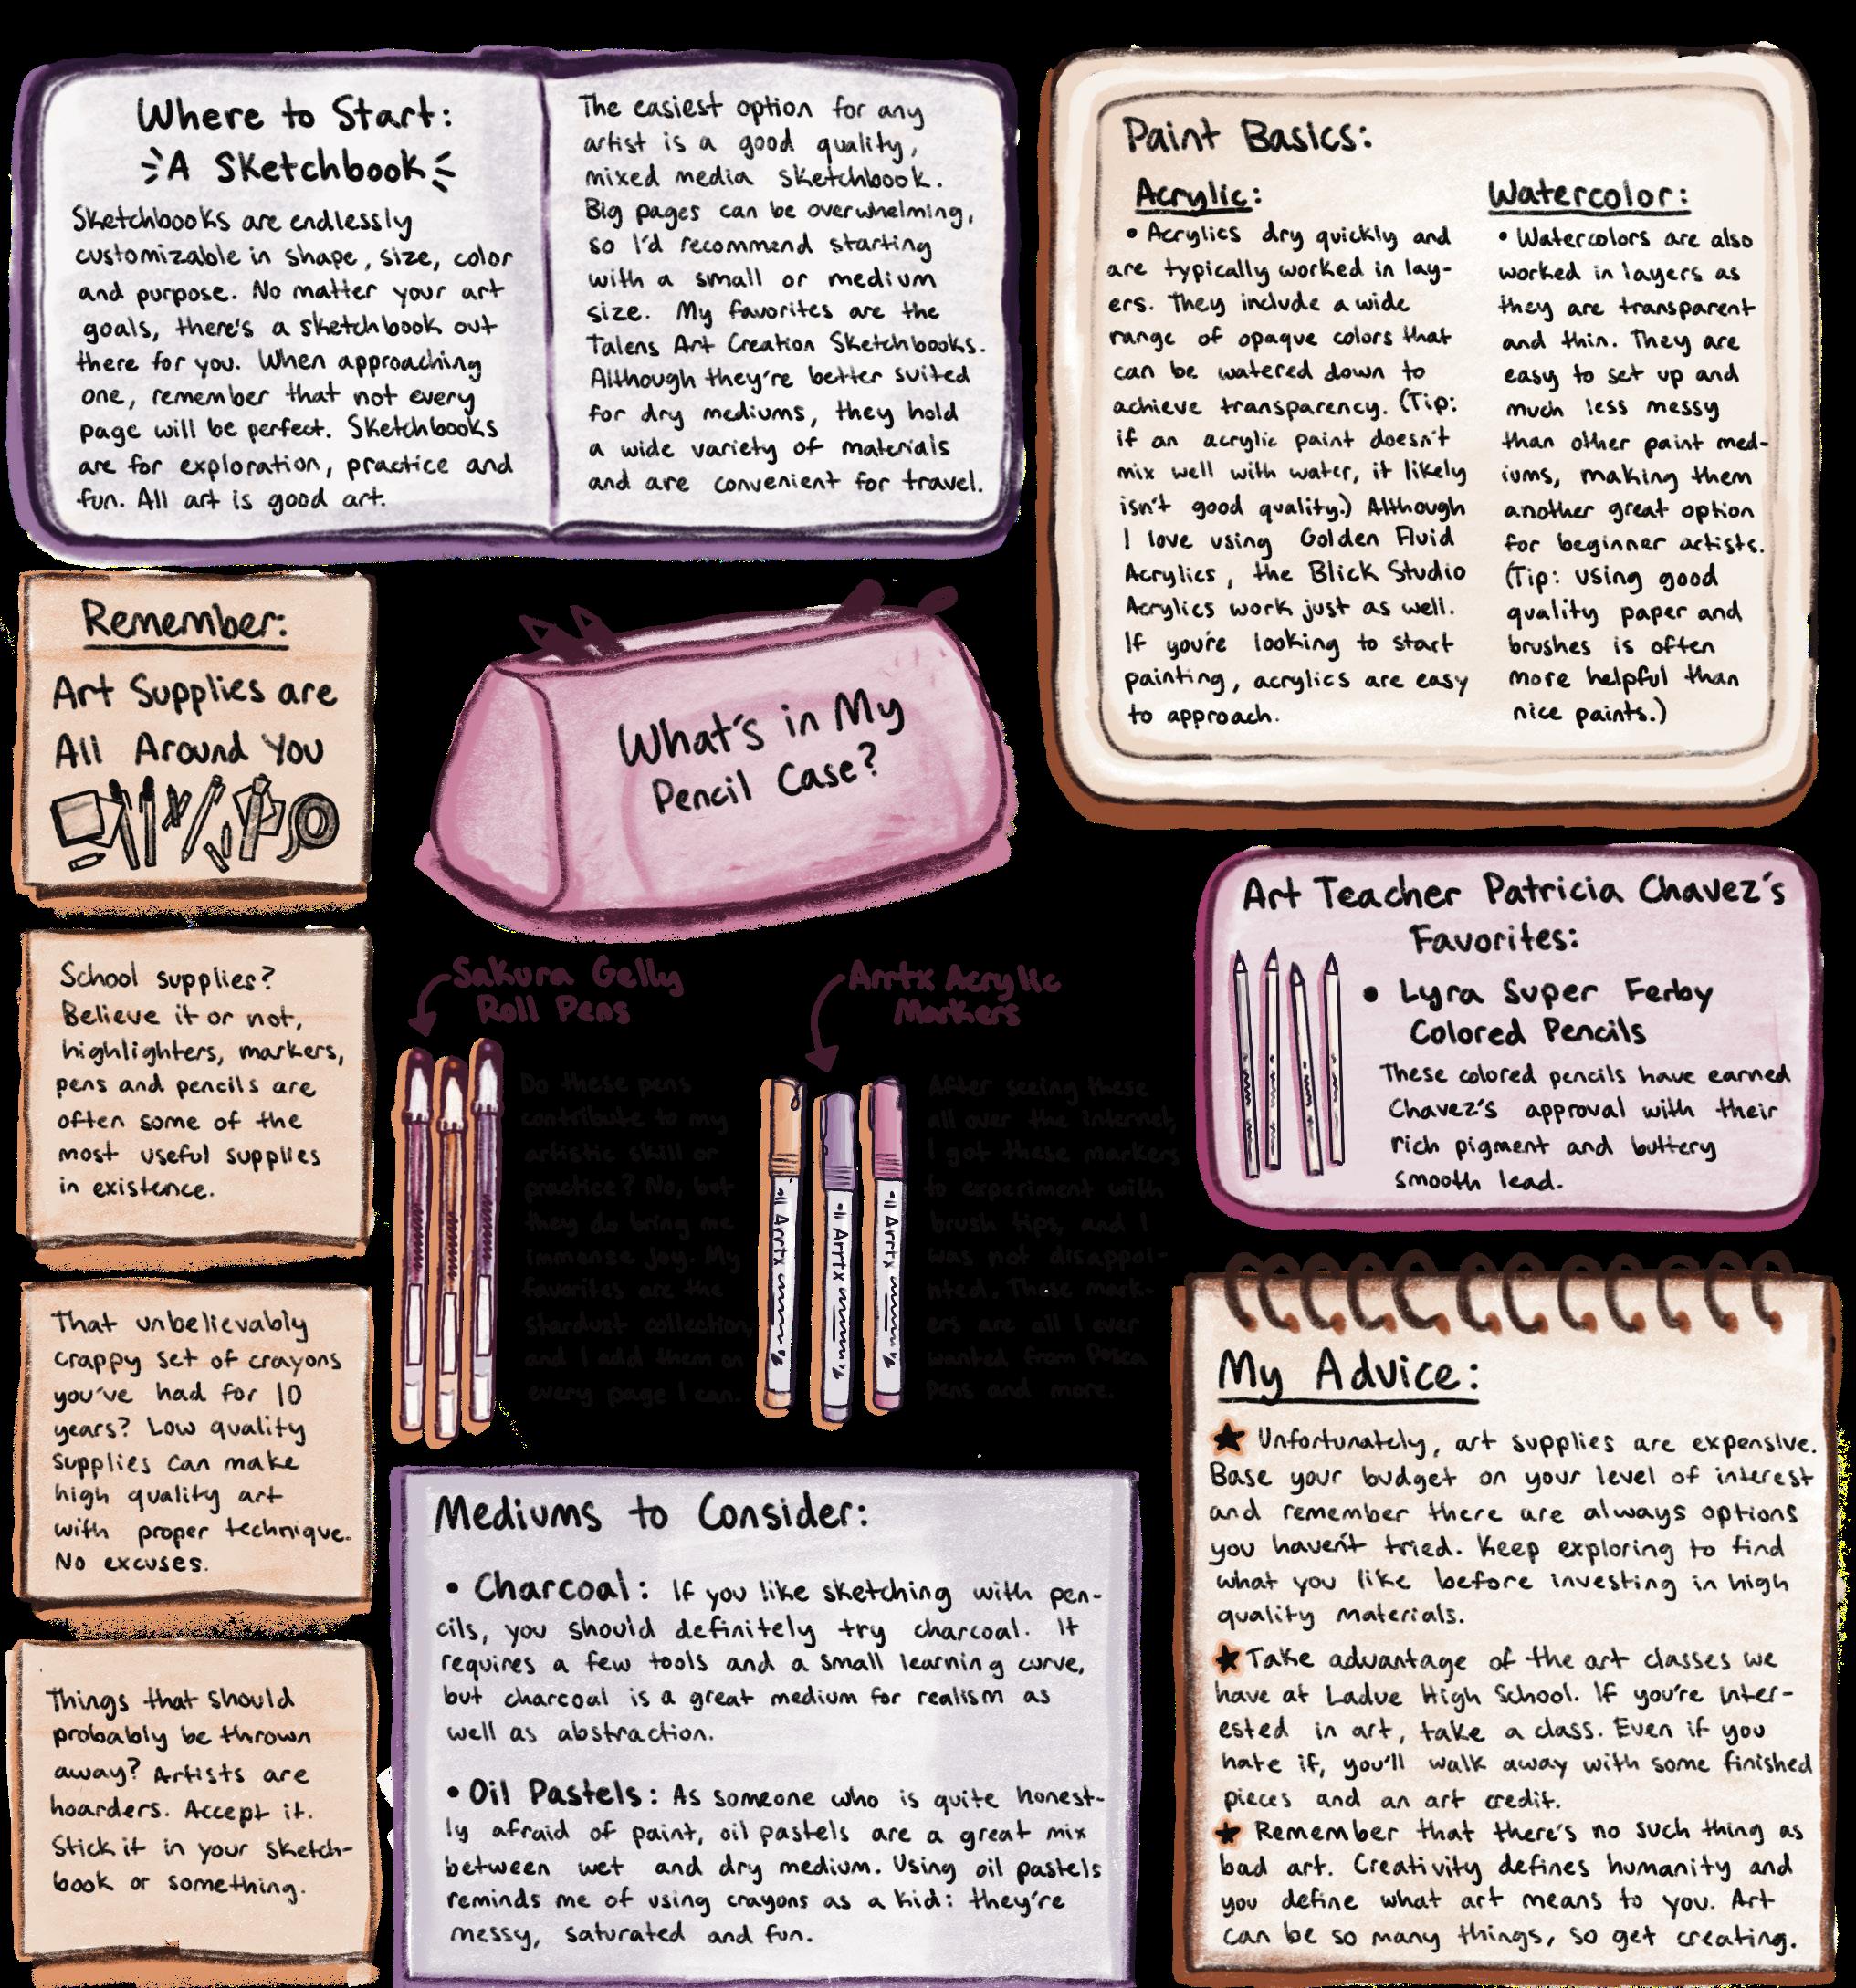 Where to Start:
A Sketchbook
Sketchbooks are endlessly
customizable in shape, size, color
and purpose. No matter your art
goals, there's a sketchbook out
there for you. When approaching
one, remember that not every
page will be perfect. Sketchbooks
are for exploration, practice and
fun. All art is good art.
The easiest option for any
artist is a good quality,
mixed media sketchbook.
Big pages can be overwhelming,
so I'd recommend starting
with a small or medium
size. My favorites are the
Talens Art Creation Sketchbooks.
Although they're better suited
for dry mediums, they hold
a wide variety of materials
and are convenient for travel.
Paint Basics:
Acrylic:
• Acrylics dry quickly and
are typically worked in lay-
ers. They include a wide
range of opaque colors that
can be watered down to
achieve transparency. (Tip:
if an acrylic paint doesn't
mix well with water, it likely
isn't good quality.) Although
I love using Golden Fluid
Acrylics, the Blick Studio
Acrylics work just as well.
If you're looking to start
painting, acrylics are easy
to approach.
Watercolor:
• Watercolors are also
worked in layers as
they are transparent
and thin. They are
easy to set up and
much less messy
than other paint med-
iums, making them
another great option
for beginner artists.
(Tip: using good
quality paper and
brushes is often
more helpful than
nice paints.)
Remember:
Art Supplies are
All Around You
School supplies?
Believe it or not,
highlighters, markers,
pens and pencils are
often some of the
most useful supplies
in existence.
That unbelievably
crappy set of crayons
you've had for 10
years? Low quality
supplies can make
high quality art
with proper technique.
No excuses.
Things that should
probably be thrown
away? Artists are
hoarders. Accept it.
Stick it in your sketch-
book or something.
What's in My
Pencil Case?
Sakura Gelly
Roll Pens
Do these pens
contribute to my
artistic skill or
practice? No, but
they do bring me
immense joy. My
favorites are the
stardust collection,
and I add them on
every page I can.
Arrtx Acrylic
Markers
Arrtx
Arrtx
Arrtx
After seeing these
all over the internet,
I got these markers
to experiment with
brush tips, and I
was not disappoi-
nted. These mark-
ers are all I ever
wanted from Posca
pens and more.
Art Teacher Patricia Chavez's
Favorites:
• Lyra Super Ferby
Colored Pencils
These colored pencils have earned
Chavez's approval with their
rich pigment and buttery
smooth lead.
Mediums to Consider:
• Charcoal: If you like sketching with pen-
cils, you should definitely try charcoal. It
requires a few tools and a small learning curve,
but charcoal is a great medium for realism as
well as abstraction.
• Oil Pastels: As someone who is quite honest-
ly afraid of paint, oil pastels are a great mix
between wet and dry medium. Using oil pastels
reminds me of using crayons as a kid: they're
messy, saturated and fun.
My Advice:
★ Unfortunately, art supplies are expensive.
Base your budget on your level of interest
and remember there are always options
you haven't tried. Keep exploring to find
what you like before investing in high
quality materials.
★ Take advantage of the art classes we
have at Ladue High School. If you're inter-
ested in art, take a class. Even if you
hate if, you'll walk away with some finished
pieces and an art credit.
★ Remember that there's no such thing as
bad art. Creativity defines humanity and
you define what art means to you. Art
can be so many things, so get creating.